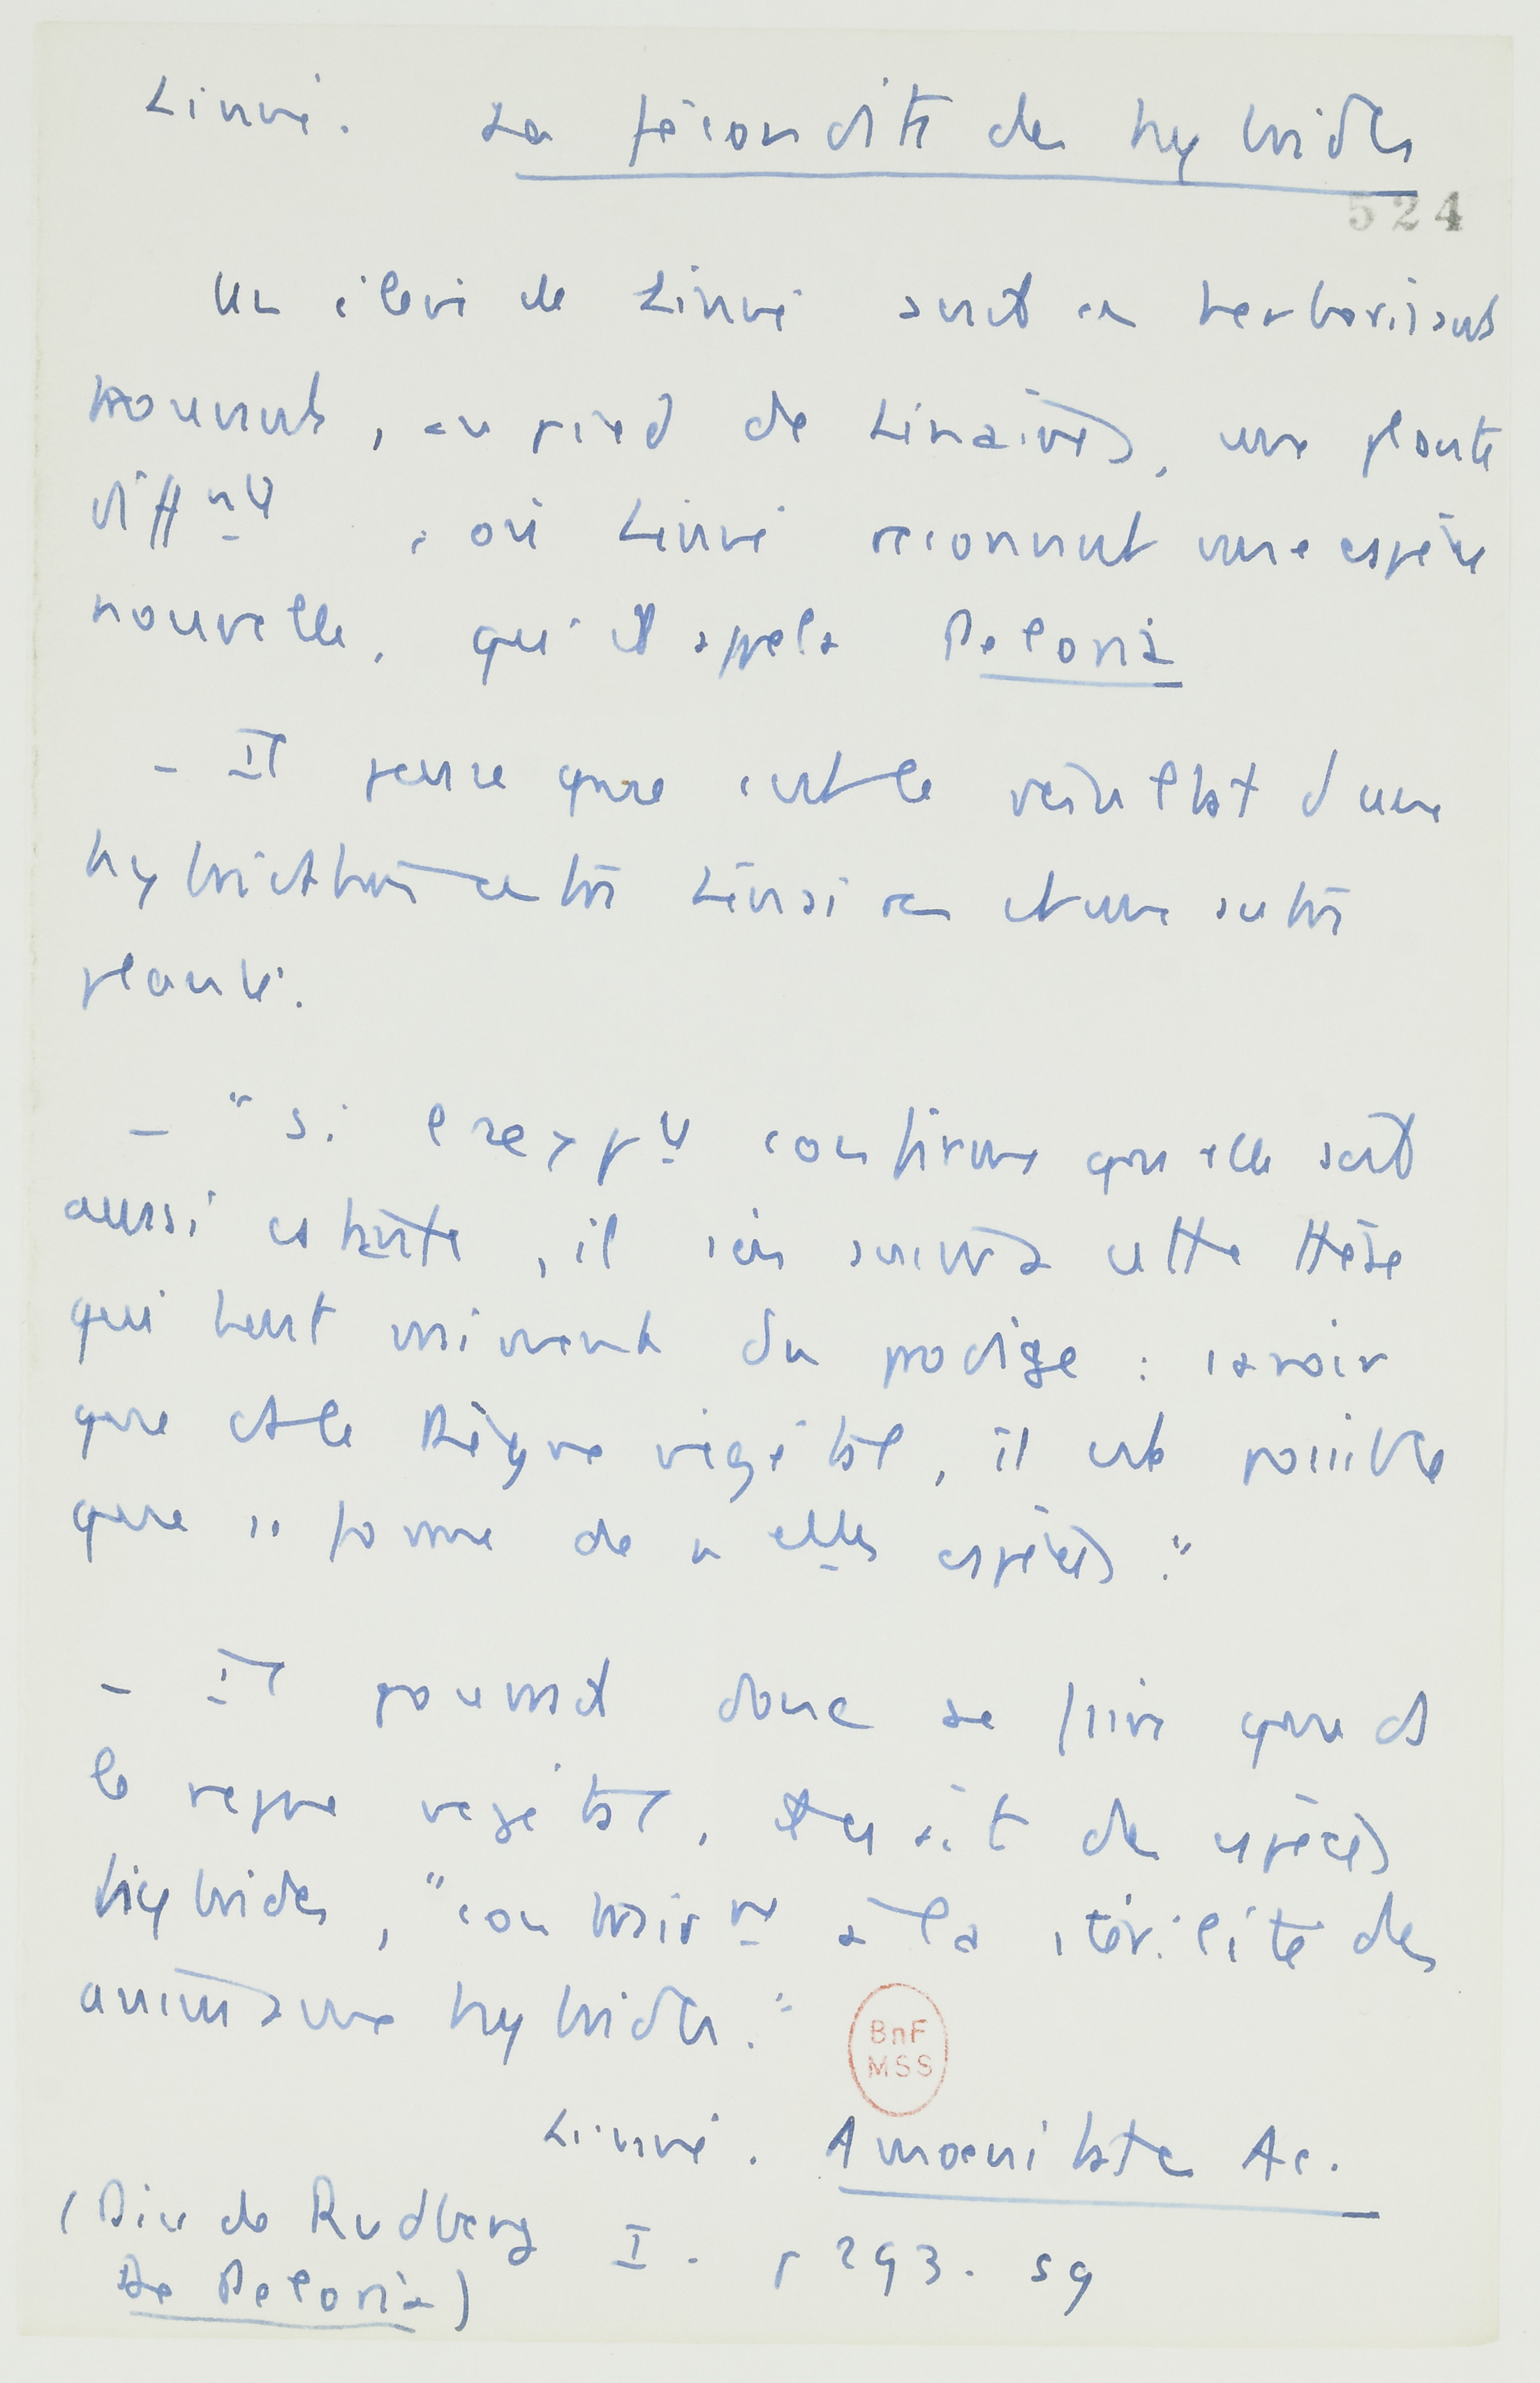 Linné. La fécondité des hybrides
524
Un élève de Linné avait en herborisant
trouvé, au pied de Linaires, une plante
différente, où Linné reconnut une espèce
nouvelle, qu'il appela Peloria
- Il pense que c'est le résultat d'une
hybridation entre Linaires et une autre
plante.
- "Si l'expce confirme que elle soit
aussi constante, il s'en suivra cette thèse
qui tient vraiment du prodige : savoir
que ds le Règne végétal, il est possible
que se forme de nelles espèces."
- Il pourrait donc se faire que ds
le règne végétal, il y ait des espèces
hybrides, "contrairt à la stérilité des
animaux hybrides."
BnF
MSS
Linné. Amoenitates Ac.
(Diss de Rudberg I. p 293. sq
De Peloria)